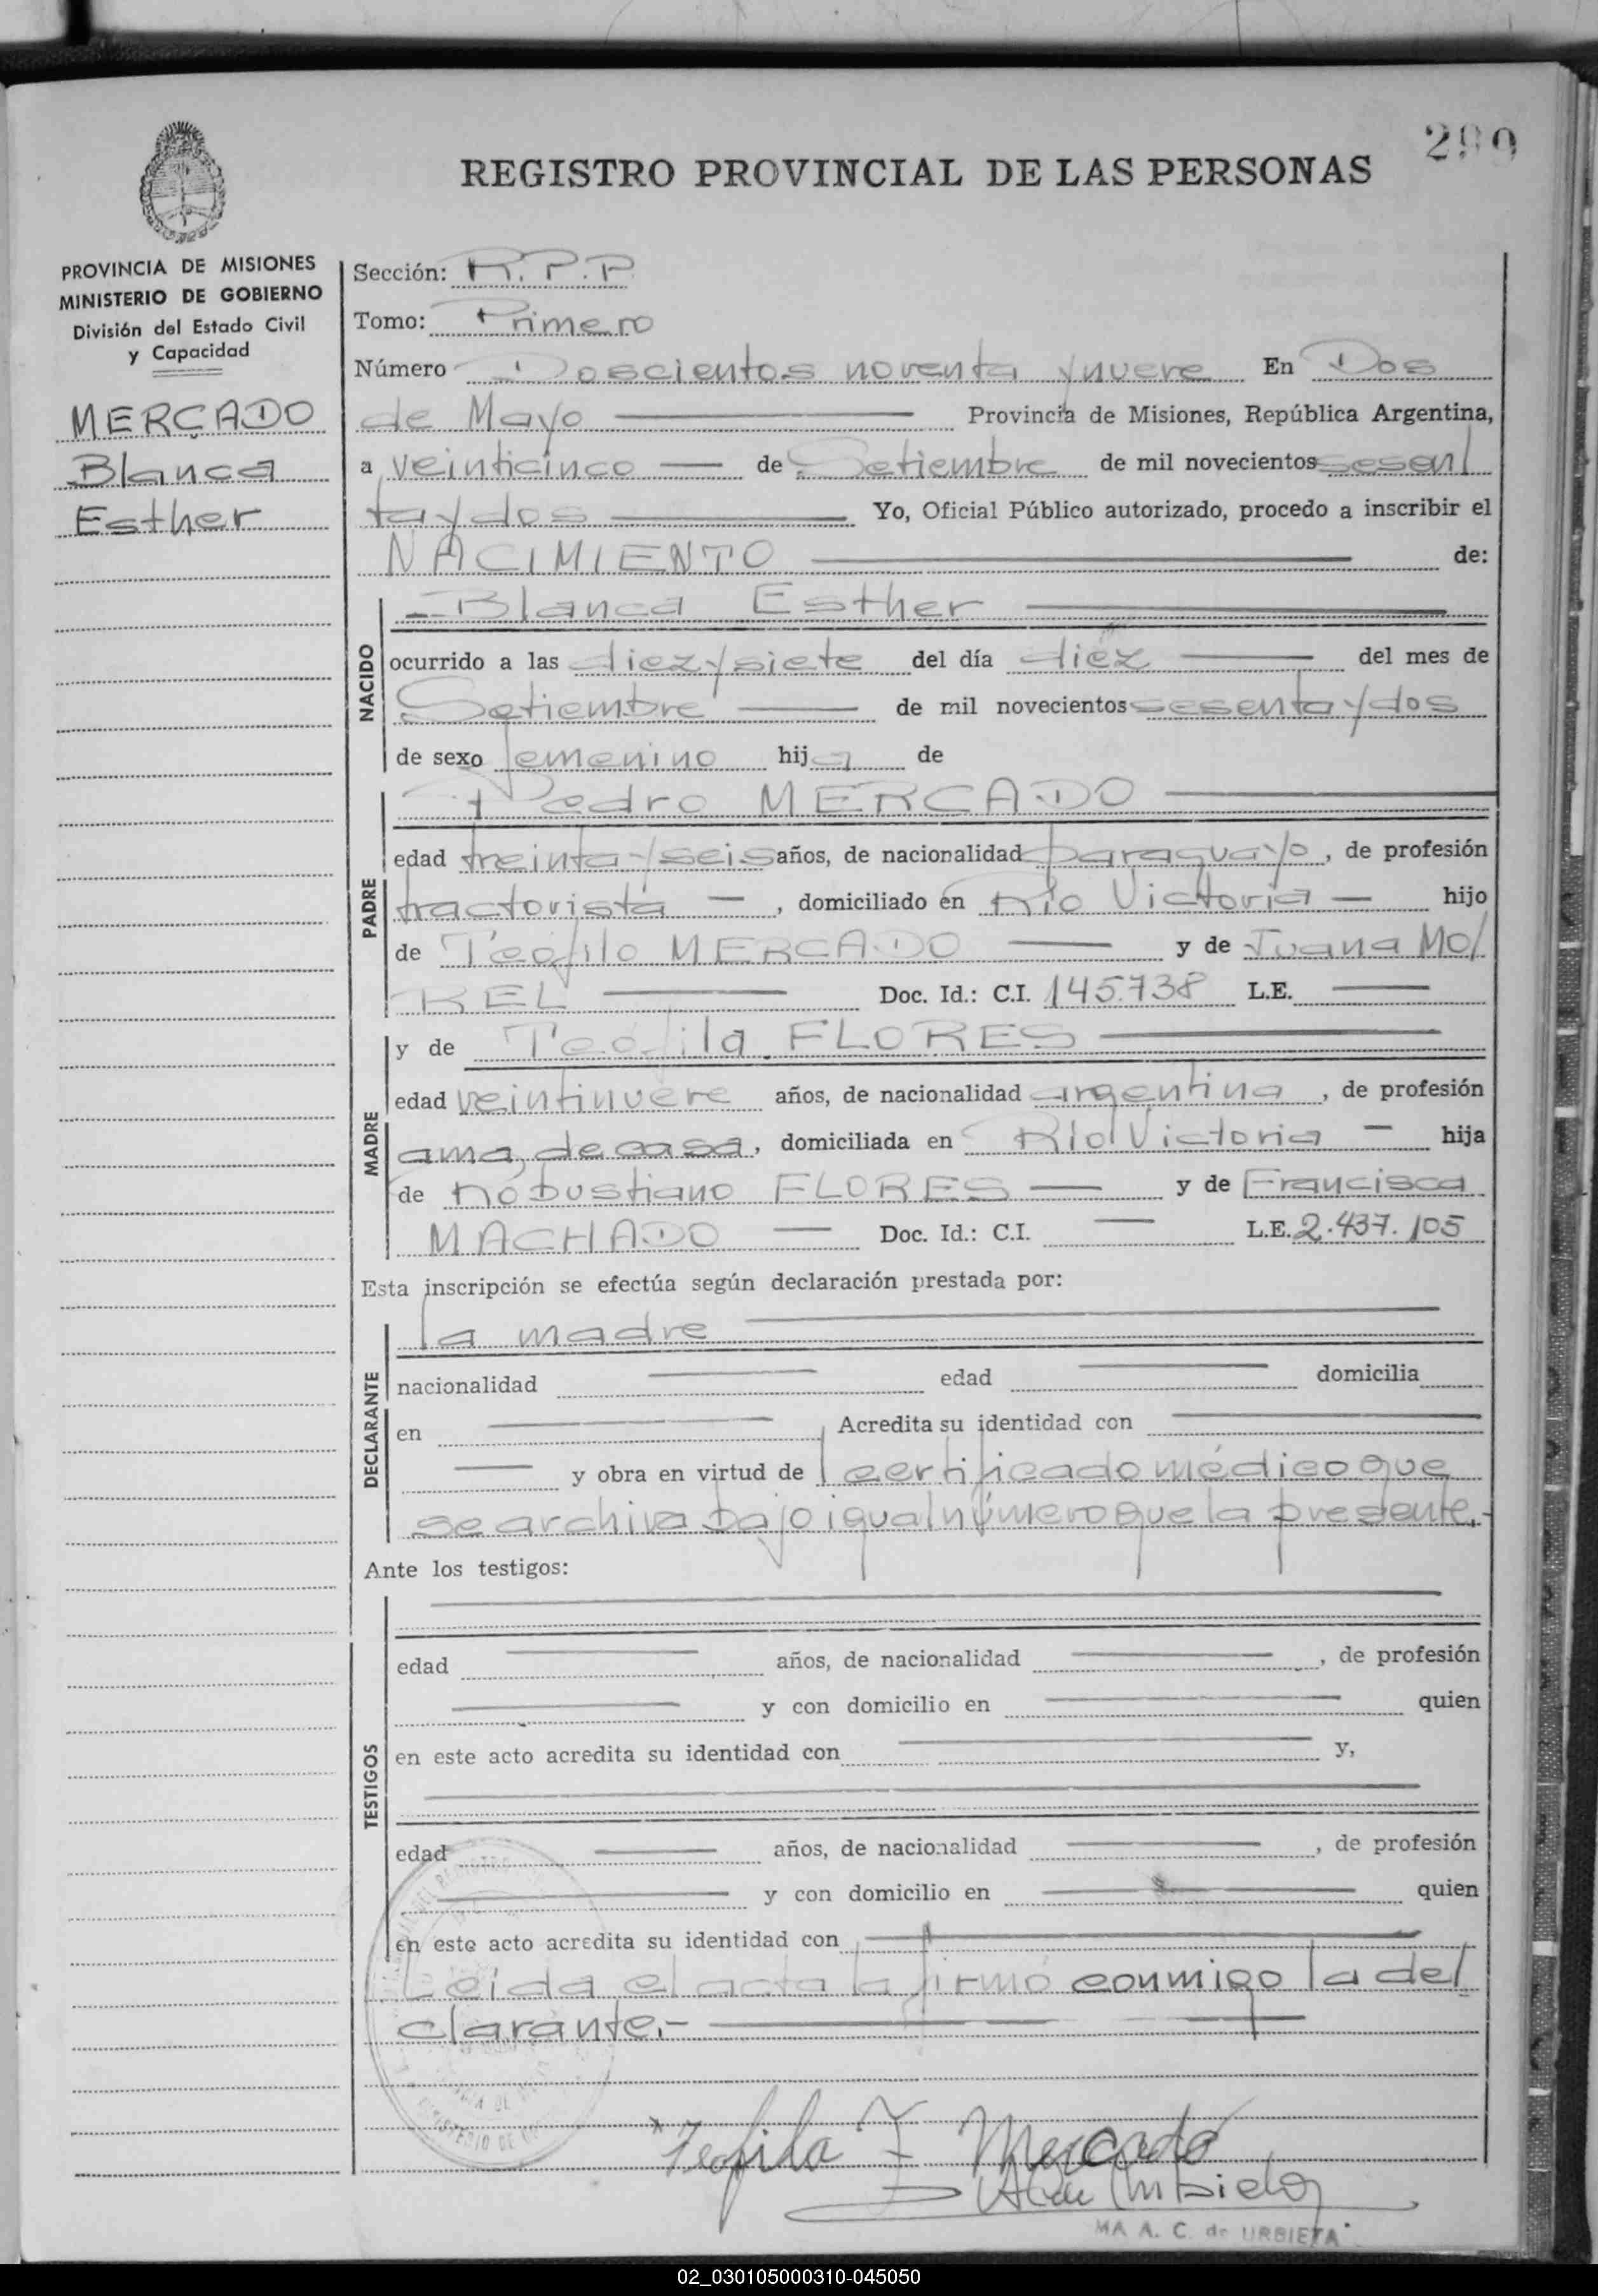 299
REGISTRO PROVINCIAL DE LAS PERSONAS
PROVINCIA DE MISIONES
MINISTERIO DE GOBIERNO
División del Estado Civil
y Capacidad
MERCADO
Blanca
Esther
Sección: R.P.P.
Tomo: Primero
Número Doscientos noventa y nueve En Dos
de Mayo Provincia de Misiones, República Argentina,
a veinticinco de Setiembre de mil novecientos sesen/
ta y dos Yo, Oficial Público autorizado, procedo a inscribir el
NACIMIENTO de:
NACIDO
Blanca Esther
ocurrido a las diez y siete del día diez del mes de
Setiembre de mil novecientos sesenta y dos
de sexo femenino hija de
PADRE
Pedro MERCADO
edad treinta y seis años, de nacionalidad paraguayo, de profesión
tractorista, domiciliado en Río Victoria hijo
de Teófilo MERCADO y de Juana MO/
REL Doc. Id.: C.I. 145.738 L.E.
MADRE
y de Teófila FLORES
edad veintinueve años, de nacionalidad argentina, de profesión
ama de casa, domiciliada en Río Victoria hija
de Robustiano FLORES y de Francisca
MACHADO Doc. Id.: C.I. L.E. 2.437.105
Esta inscripción se efectúa según declaración prestada por:
DECLARANTE
la madre
nacionalidad edad domicilia
en Acredita su identidad con
y obra en virtud de certificado médico que
se archiva bajo igual número que la presente.-
Ante los testigos:
TESTIGOS
edad años, de nacionalidad , de profesión
y con domicilio en quien
en este acto acredita su identidad con y,
edad años, de nacionalidad , de profesión
y con domicilio en quien
en este acto acredita su identidad con
Leída el acta la firmó conmigo la de/
clarante.-
Teofila F Mercado
MA A. C. de URBIETA
02_030105000310-045050